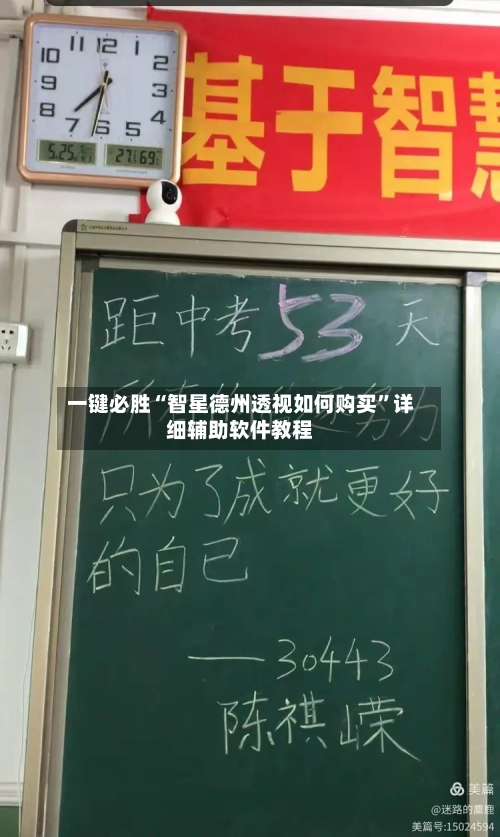 11 12 1
10 2
9 3
8 4
7 6 5
5.25 27 69
基于智慧
距中考53天
一键必胜“智星德州透视如何购买”详
细辅助软件教程
努力
只为了成就更好
的自己
——30443
陈祺嵘
美篇
@迷路的麋鹿
美篇号:15024594